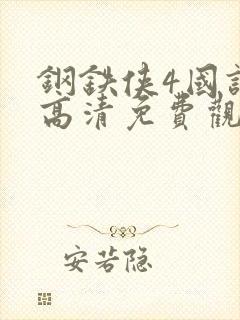 鋼鉄俠4國
高清免費觀
安若隐